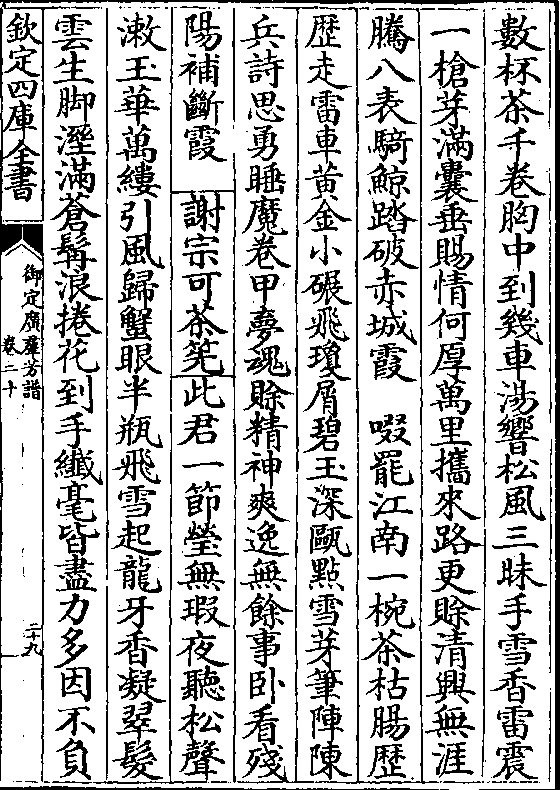 數杯茶千卷胸中到幾車湯響松風三昧手雪香雷震
一槍芽滿囊垂賜情何厚萬里攜來路更賒清興無涯
騰八表騎鯨踏破赤城霞　啜罷江南一椀茶枯腸歴
歴走雷車黄金小碾飛瓊屑碧玉深甌㸃雪芽筆陣陳
兵詩思勇睡魔卷甲夢魂賒精神爽逸無餘事卧看殘
陽補斷霞　謝宗可茶筅此君一節瑩無瑕夜聽松聲
漱玉華萬縷引風歸蟹眼半瓶飛雪起龍牙香凝翠髮
雲生脚溼滿蒼髯浪捲花到手纎毫皆盡力多因不負
欽定四庫全書
御定廣羣芳譜
卷二十
二十九